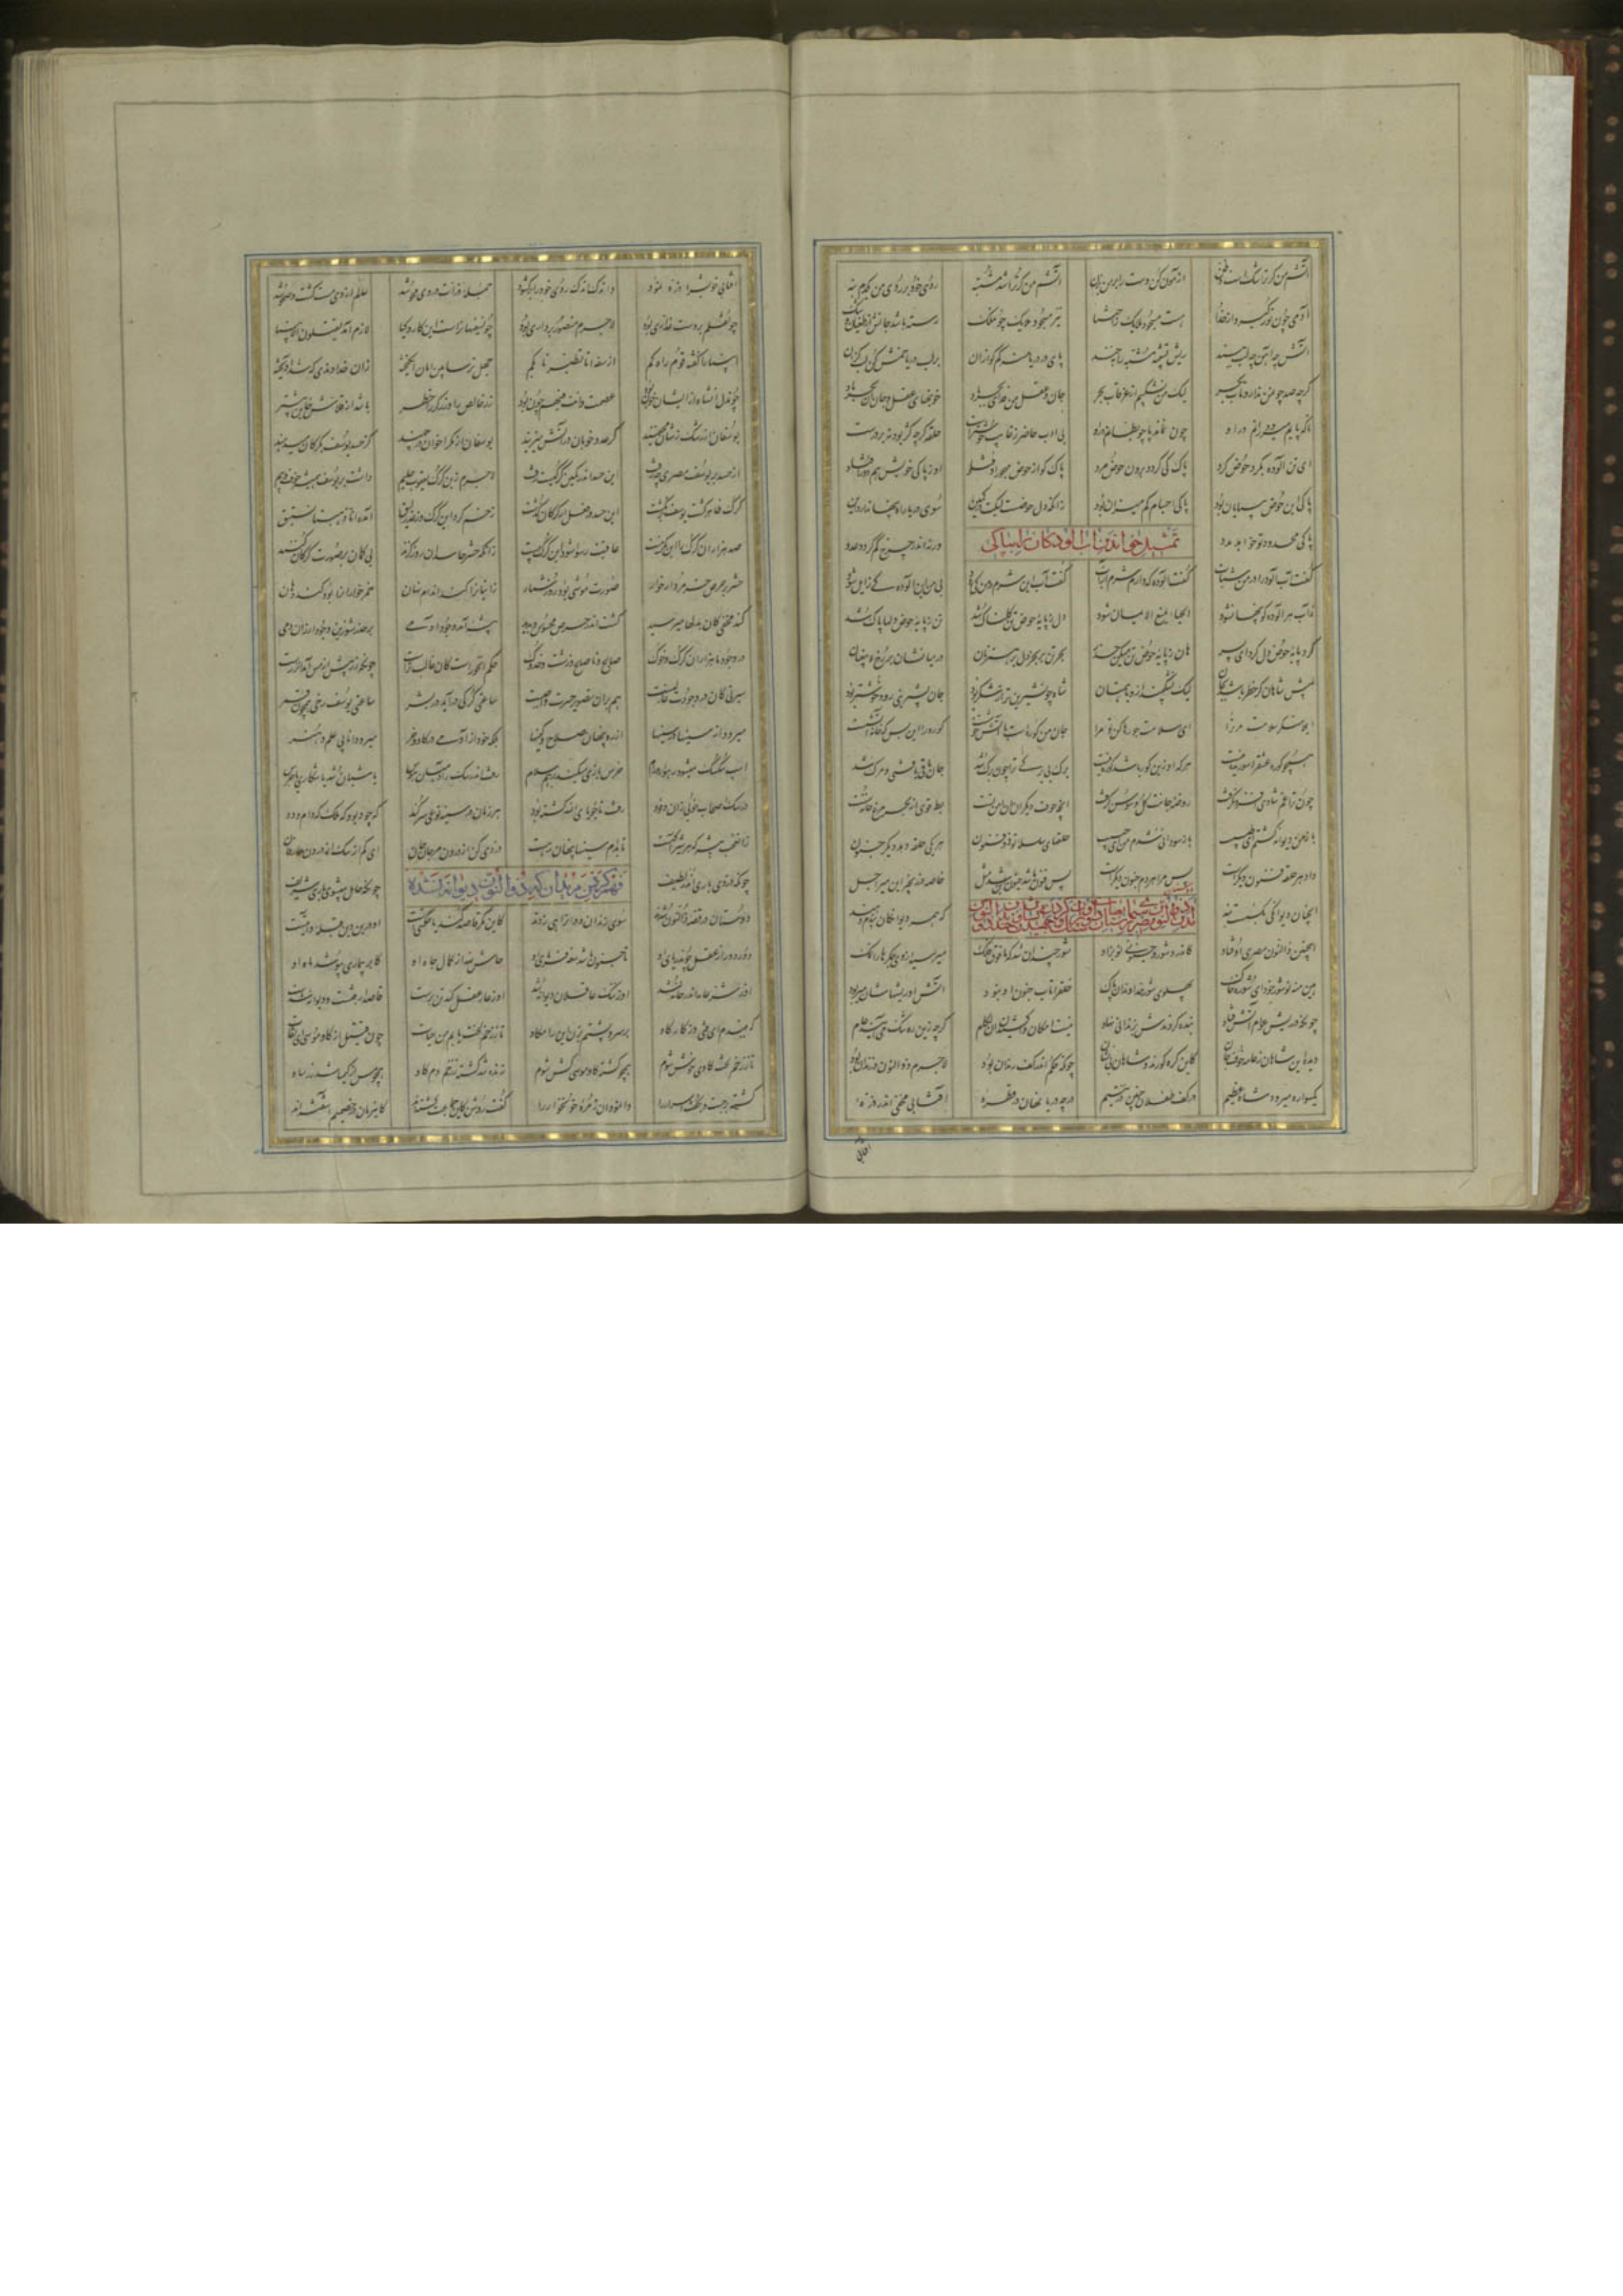 آتشم من گر ترا شکست و ظن ازمون کن دست را بر من بزن آتشم من گر ترا شد مشتبه روی خود بر روی من یکدم بنه
آدمی چون نور گیرد از خدا هست مسجود ملایک ز اجتبا نیز مسجود ملایک چون ملک رسته باشد جانش از طغیان و شک
آتش چه آهن چه لب ببند ریش تشبیه مشبه را مخند پای در دریا منه کم گو ازان بر لب دریا خمش کن لب گزان
گرچه صد چون من ندارد تاب بحر لیک من نشکیبم از غرقاب بحر جان و عقل من فدای بحر باد خونبهای عقل و جان این بحر داد
تا که پایم میرود رانم درو چون نماند پا چو بطانم درو بی ادب حاضر ز غایب خوشترست حلقه گرچه کژ بود نه بر درست
ای تن آلوده بگرد حوض گرد پاک کی گردد برون حوض مرد پاک کو از حوض مهجور اوفتاد او ز پاکی خویش هم دور اوفتاد
پاکی این حوض بی پایان بود پاکی اجسام کم میزان بود زانکه دل حوضست لیکن در کمین سوی دریا راه پنهان دارد این
پاکی محدود تو خواهد مدد ورنه اندر خرج کم گردد عدد
تمثیل خواندن آب آلودگان را بپاکی
گفت آب آلوده را در من شتاب گفت آلوده که دارم شرم از آب گفت آب این شرم بی من کی رود بی من این آلوده کی زایل شود
ز آب هر آلوده کو پنهان شود الحیا یمنع الایمان بود دل ز پایه حوض تن گلناک شد تن ز پایه حوض دلها پاک شد
گرد پایه حوض دل گرد ای پسر هان ز پایه حوض تن میکن حذر بحر تن بر بحر دل بر هم زنان در میانشان برزخ لا یبغیان
پیش شاهان گر خطر باشد بجان لیک نشکیبند ازو با همتان شاه چون شیرین تر از شکر بود جان بشیرینی رود خوشتر بود
ای ملامتگر سلامت مر ترا ای سلامت جو رها کن تو مرا جان من کوره است با آتش خوشست کوره را این بس که خانه آتشست
همچو کوره عشق را سوزیدنیست هرکه او زین کور باشد کوره نیست برگ بی برگی ترا چون برگ شد جان باقی یافتی و مرگ شد
چون ترا غم شادی افزودن گرفت روضه جانت گل و سوسن گرفت آنچه خوف دیگران آن امن تست بط قوی از بحر و مرغ خانه سست
باز دیوانه شدم من ای طبیب باز سودایی شدم من ای حبیب حلقهای سلسله تو ذوفنون هر یکی حلقه دهد دیگر جنون
داد هر حلقه فنونی دیگرست پس مرا هر دم جنونی دیگرست پس فنون باشد جنون این شد مثل خاصه در زنجیر این میر اجل
آنچنان دیوانگی بگسست بند که همه دیوانگان پندم دهند
اینچنین ذالنون مصری را فتاد کاندرو شور و جنونی نو بزاد شور چندان شد که تا فوق فلک میرسید از وی جگرها را نمک
هین منه تو شور خود ای شوره خاک پهلوی شور خداوندان پاک خلق را تاب جنون او نبود آتش او ریشهاشان میربود
چونکه در ریش عوام آتش فتاد بند کردندش بزندانی نهاد نیست امکان واکشیدن این لگام گرچه زین ره تنگ می آیند عام
دیده این شاهان ز عامه خوف جان کاین گره کورند و شاهان بی نشان چونکه حکم اندر کف رندان بود لاجرم ذوالنون در زندان بود
یکسواره میرود شاه عظیم در کف طفلان چنین در یتیم در چه دریا نهان در قطره آفتابی مخفی اندر ذره
آفتابی
آفتابی خویش را ذره نمود و اندک اندک روی خود را برگشود جمله ذرات در وی محو شد عالم از وی مست گشت و صحو شد
چون قلم در دست غداری بود لاجرم منصور بر داری بود چون سفیهان راست این کار و کیا لازم آمد یقتلون الانبیا
انبیا را گفته قوم راه گم از سفه انا تطیرنا بکم جهل ترسا بین امان انگیخته زان خداوندی که گشت آویخته
چون دل آن شاه ز ایشان خون بود عصمت و انت فیهم چون بود زر خالص را و زرگر را خطر باشد از قلاب خاین بیشتر
یوسفان از رشک زشتان مخفیند کز عدو خوبان در آتش میزیند یوسفان از مکر اخوان در چهند کز حسد یوسف بگرگان میدهند
از حسد بر یوسف مصری چه رفت این حسد اندر کمین گرگیست زفت لاجرم زین گرگ یعقوب حلیم داشت بر یوسف همیشه خوف و بیم
گرگ ظاهر گرد یوسف خود نگشت این حسد در فعل از گرگان گذشت زخم کرد این گرگ وز عذر لبق آمده کانا ذهبنا نستبق
صد هزاران گرگ را این مکر نیست عاقبت رسوا شود این گرگ بیست زانکه حشر حاسدان روز گزند بی گمان بر صورت گرگان کنند
حشر پر حرص خس مردار خوار صورت بود روز شمار زانیان را گند اندام نهان خمر خواران را بود گند دهان
گند مخفی کان بدلها میرسید گشت اندر حشر محسوس و پدید بیشه آمد وجود آدمی بر حذر شو زین وجود ار زان دمی
در وجود ما هزاران گرگ و خوک صالح و ناصالح و حکم آن خوراست کان غالبترست چونکه زر بیش از مس آمد آن زرست
سیرتی کان در وجودت غالبست هم بران تصویر حشرت واجبست ساعتی گرگی درآید در بشر ساعتی یوسف رخی همچون قمر
میرود از سینها در سینها از ره پنهان صلاح و کینها بلکه خود از آدمی در گاو و خر میرود دانایی و علم و هنر
اسب سکسک میشود رهوار و رام خرس بازی میکند بز هم سلام رفت اندر سگ ز آدمیان هوس تا شبان شد یا شکاری یا حرس
در سگ اصحاب خویی زان وفود رفت تا جویای الله گشته بود هر زمان در سینه نوعی سر کند گاه دیو و گه ملک گه دام و دد
زان عجب بیشه که هر شیر آگهست تا بدام سینها پنهان رهست دزدیی کن از درون مرجان جان ای کم از سگ از درون عارفان
چونکه دزدی باری آن در لطیف چونکه حامل میشوی باری شریف
فهم کردن مریدان که ذوالنون دیوانه نشده
دوستان در قصه ذالنون شدند سوی زندان و دران رایی زدند کاین مگر قاصد کند یا حکمتیست او درین دین قبله و آیتیست
دور دور از عقل چون دریای او تا جنون باشد سفه فرمای او حاش لله از کمال جاه او کابر بیماری بپوشد ماه او
او ز شر عامه اندر خانه شد او ز ننگ عاقلان دیوانه شد او ز عار عقل کند تن پرست قاصدا رفتست و دیوانه شدست
که ببندیدم ای فتی وز ساز گاو بر سر و پشتم بزن وین را مکاو تا ز زخم لخت یابم من حیات چون قتیل از گاو موسی ای ثقات
تا ز زخم لخت گاوی خوش شوم همچو کشته گاو موسی گش شوم زنده شد کشته ز زخم دم گاو همچو مس از کیمیا شد زر ساو
کشته برجست و بگفت اسرار را وا نمود آن زمره خونخوار را گفت روشن کاین جماعت کشته اند کاین زمان در خصمیم آشفته اند